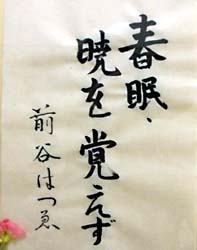 春眠、
暁を覚えず
前谷はつゑ